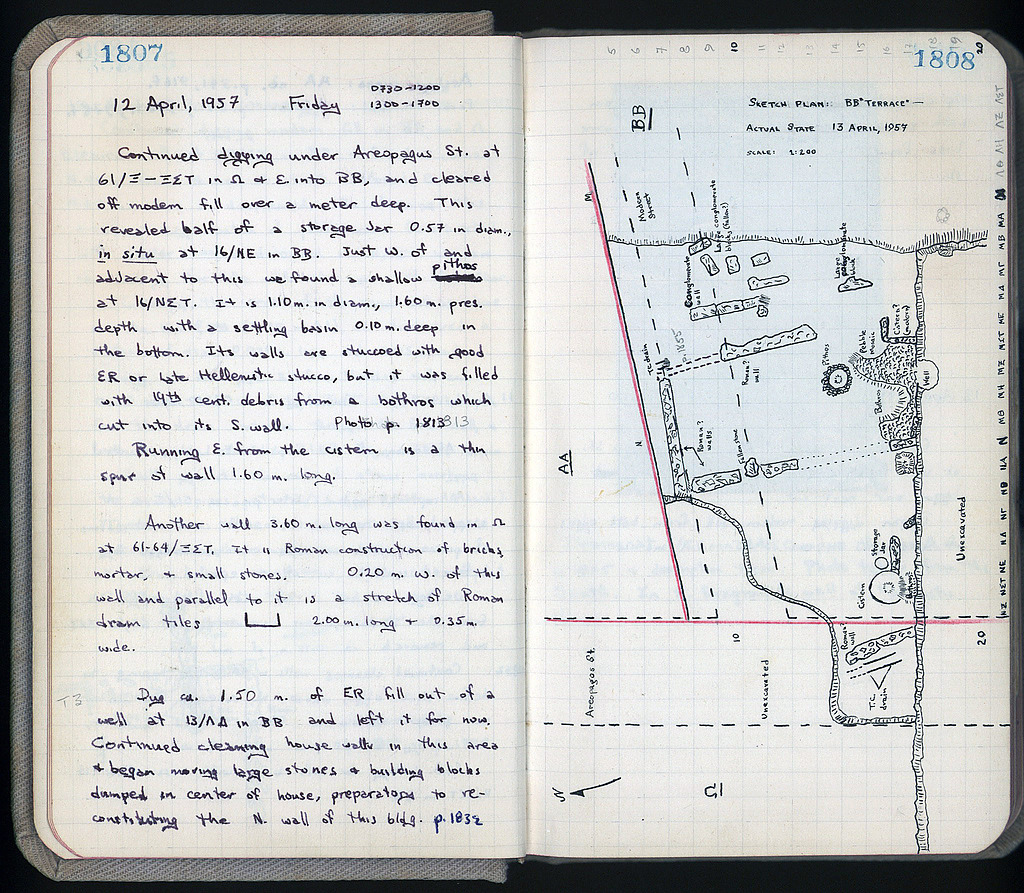 1807
12 April, 1957 Friday 0730-1200
1300-1700
Continued digging under Areopagus St. at
61/Ξ-ΞΣΤ in Ω & E. into BB, and cleared
off modern fill over a meter deep. This
revealed half of a storage jar 0.57 in diam.,
in situ at 16/NE in BB. Just W. of and
adjacent to this we found a shallow pithos
at 16/NΣΤ. It is 1.10 m. in diam., 1.60 m. pres.
depth with a settling basin 0.10 m. deep in
the bottom. Its walls are stuccoed with good
ER or late Hellenistic stucco, but it was filled
with 19th cent. debris from a bothros which
cut into its S. wall. Photo p. 1813
Running E. from the cistern is a thin
spur of wall 1.60 m. long.
Another wall 3.60 m. long was found in Ω
at 61-64/ΞΣΤ. It is Roman construction of bricks,
mortar, & small stones. 0.20 m. W. of this
wall and parallel to it is a stretch of Roman
drain tiles 2.00 m. long & 0.35 m.
wide.
T3
Dug ca. 1.50 m. of ER fill out of a
well at 13/ΛΔ in BB and left it for now.
Continued cleaning house walls in this area
& began moving large stones & building blocks
dumped in center of house, preparatory to re-
constituting the N. wall of this bldg. p. 1832
1808
5 6 7 8 9 10 11 12 13 14 15 16 17 18 19 20
SKETCH PLAN: BB "TERRACE" —
ACTUAL STATE 13 APRIL, 1957
SCALE: 1:200
BB
M
Modern
Street
Large conglomerate
block (fallen?)
Conglomerate
wall
Large
conglomerate
block
p. 1855
TC drain
Roman?
wall
Pithos
Pebble
Mosaic
Cistern?
(modern)
Well
Bothros
AA
N
Roman?
walls
Fallen stone
Storage
Jar
Cistern
Bothros
Unexcavated
Roman?
wall
T.C.
drain
Areopagus St.
10
Unexcavated
20
N
Ω
ΝΖ ΝΣΤ ΝΕ ΝΔ ΝΓ ΝΒ ΝΑ Ν ΜΘ ΜΗ ΜΖ ΜΣΤ ΜΕ ΜΔ ΜΓ ΜΒ ΜΑ Μ ΛΘ ΛΗ ΛΖ ΛΣΤ